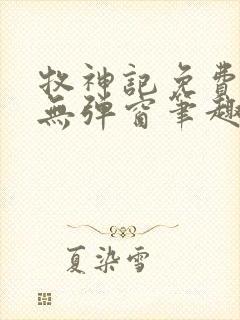 牧神記免費
無彈窗筆趣
夏染雪